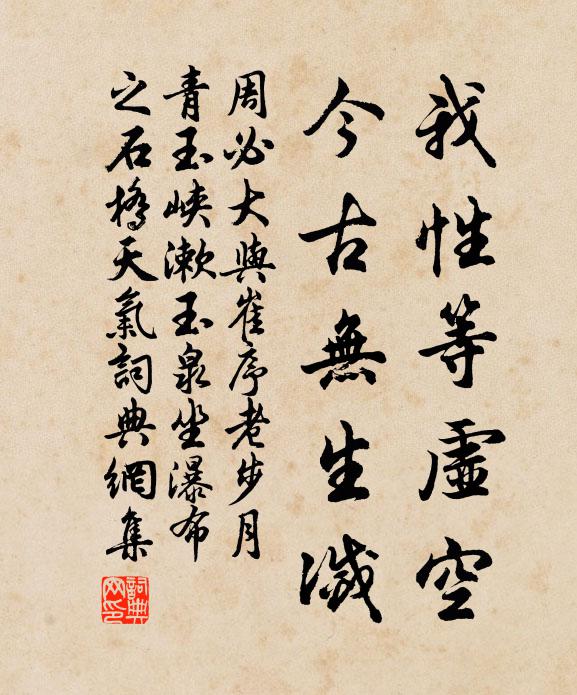 我性等虛空
今古無生滅
周必大與崔序老步月
青玉峽漱玉泉坐瀑布
之石橋天氣詞典網集
詞典